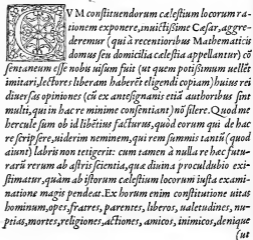 CVM constituendorum cælestium locorum ra-
tionem exponere, inuictissime Cæsar, aggre-
deremur (qui à recentioribus Mathematicis
domus seu domicilia cælestia appellantur) cõ
sentaneum esse nobis uisum fuit (ut quem potisimum uellẽt
imitari, lectores liberam haberẽt eligendi copiam) huius rei
diuersas opiniones (cũ ex antesignanis etiã authoribus sint
multi, qui in hac re minime consentiant) nõ silere. Quod me
hercule sum ob id libẽtius facturus, quòd eorum qui de hac
re scripsere, uiderim neminem, qui rem summis tanti (quod
aiunt) labris non tetigerit: cum tamen à nulla re hac futu-
rarũ rerum ab astris scientia, quæ diuina proculdubio exi-
stimatur, quàm ab istorum cælestium locorum iusta exami-
natione magis pendeat. Ex horum enim constitutione uitas
hominum, opes, fratres, parentes, liberos, ualetudines, nu-
ptias, mortes, religiones, actiones, amicos, inimicos, denique
(ut